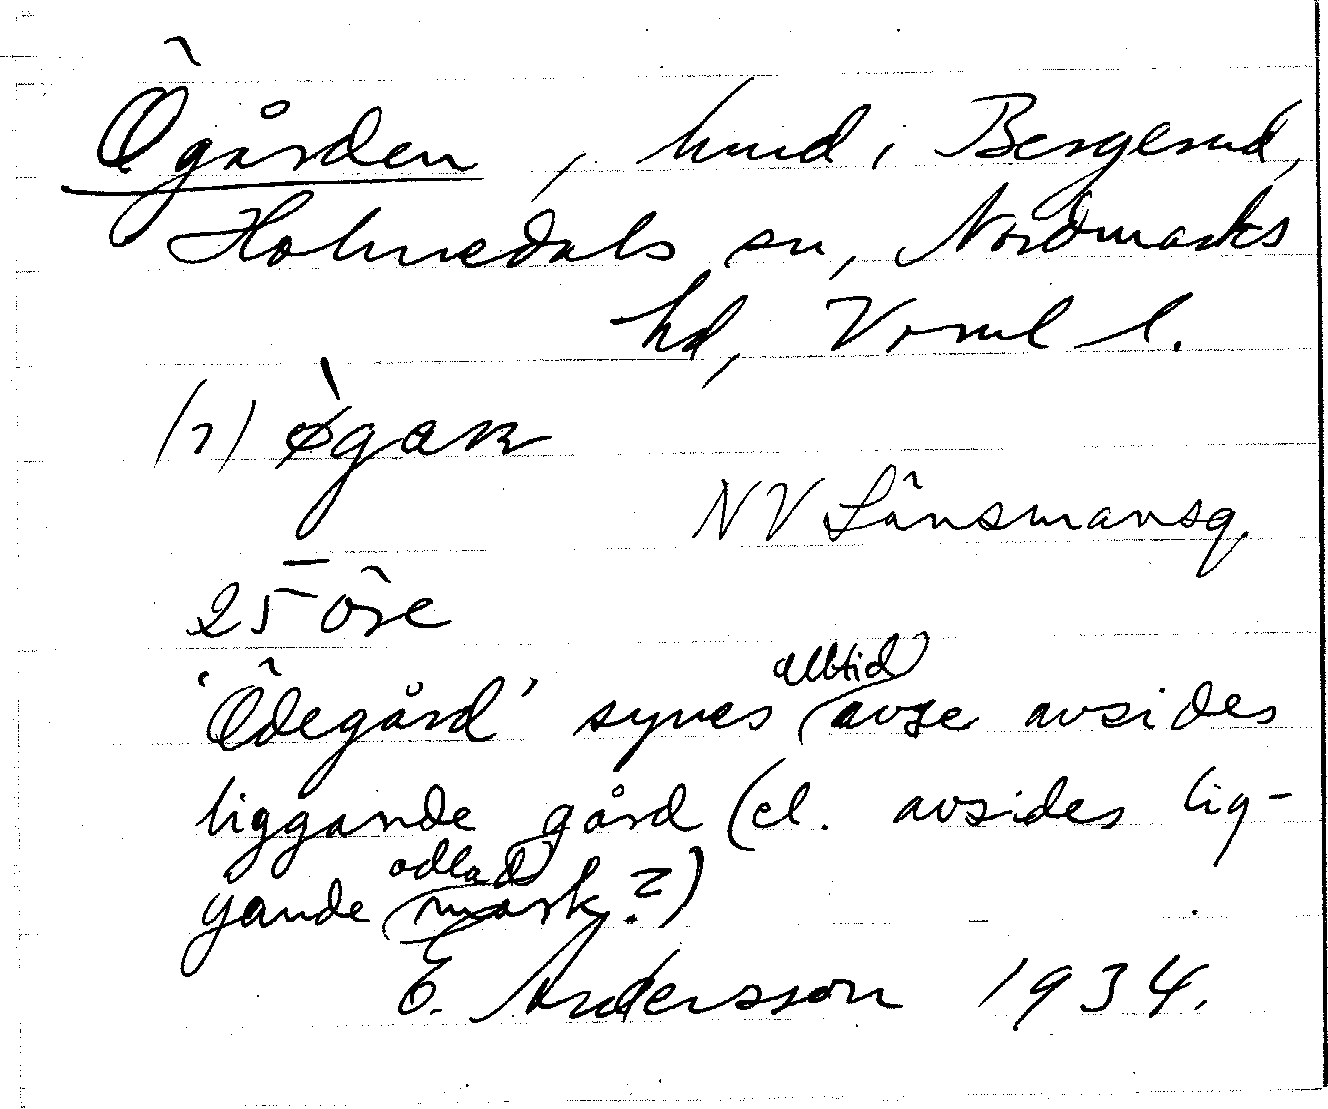 Ögården, hmd i Bergerud,
Holmedals sn, Nordmarks
hd, Vrml l.
(1) øgaɴ
NV Länsmansg.
25 öre
'Ödegård' synes alltid avse avsides
liggande gård (el. avsides lig-
gande odlad mark?)
E. Andersson 1934.